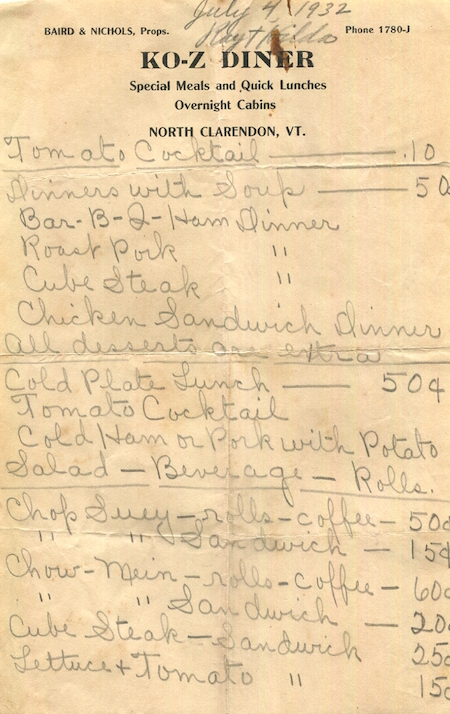 July 4, 1932
BAIRD & NICHOLS, Props.
Phone 1780-J
KO-Z DINER
Special Meals and Quick Lunches
Overnight Cabins
NORTH CLARENDON, VT.
Tomato Cocktail — .10
Dinners with Soup — 50
Bar-B-Q-Ham Dinner
Roast Pork "
Cube Steak "
Chicken Sandwich Dinner
all desserts are extra
Cold Plate Lunch — 50¢
Tomato Cocktail
Cold Ham or Pork with Potato
Salad — Beverage — Rolls.
Chop Suey - rolls - coffee - 50¢
" " Sandwich — 15¢
Chow-Mein - rolls - coffee - 60¢
" " Sandwich — 20¢
Cube Steak - Sandwich 25¢
Lettuce + Tomato " 15¢